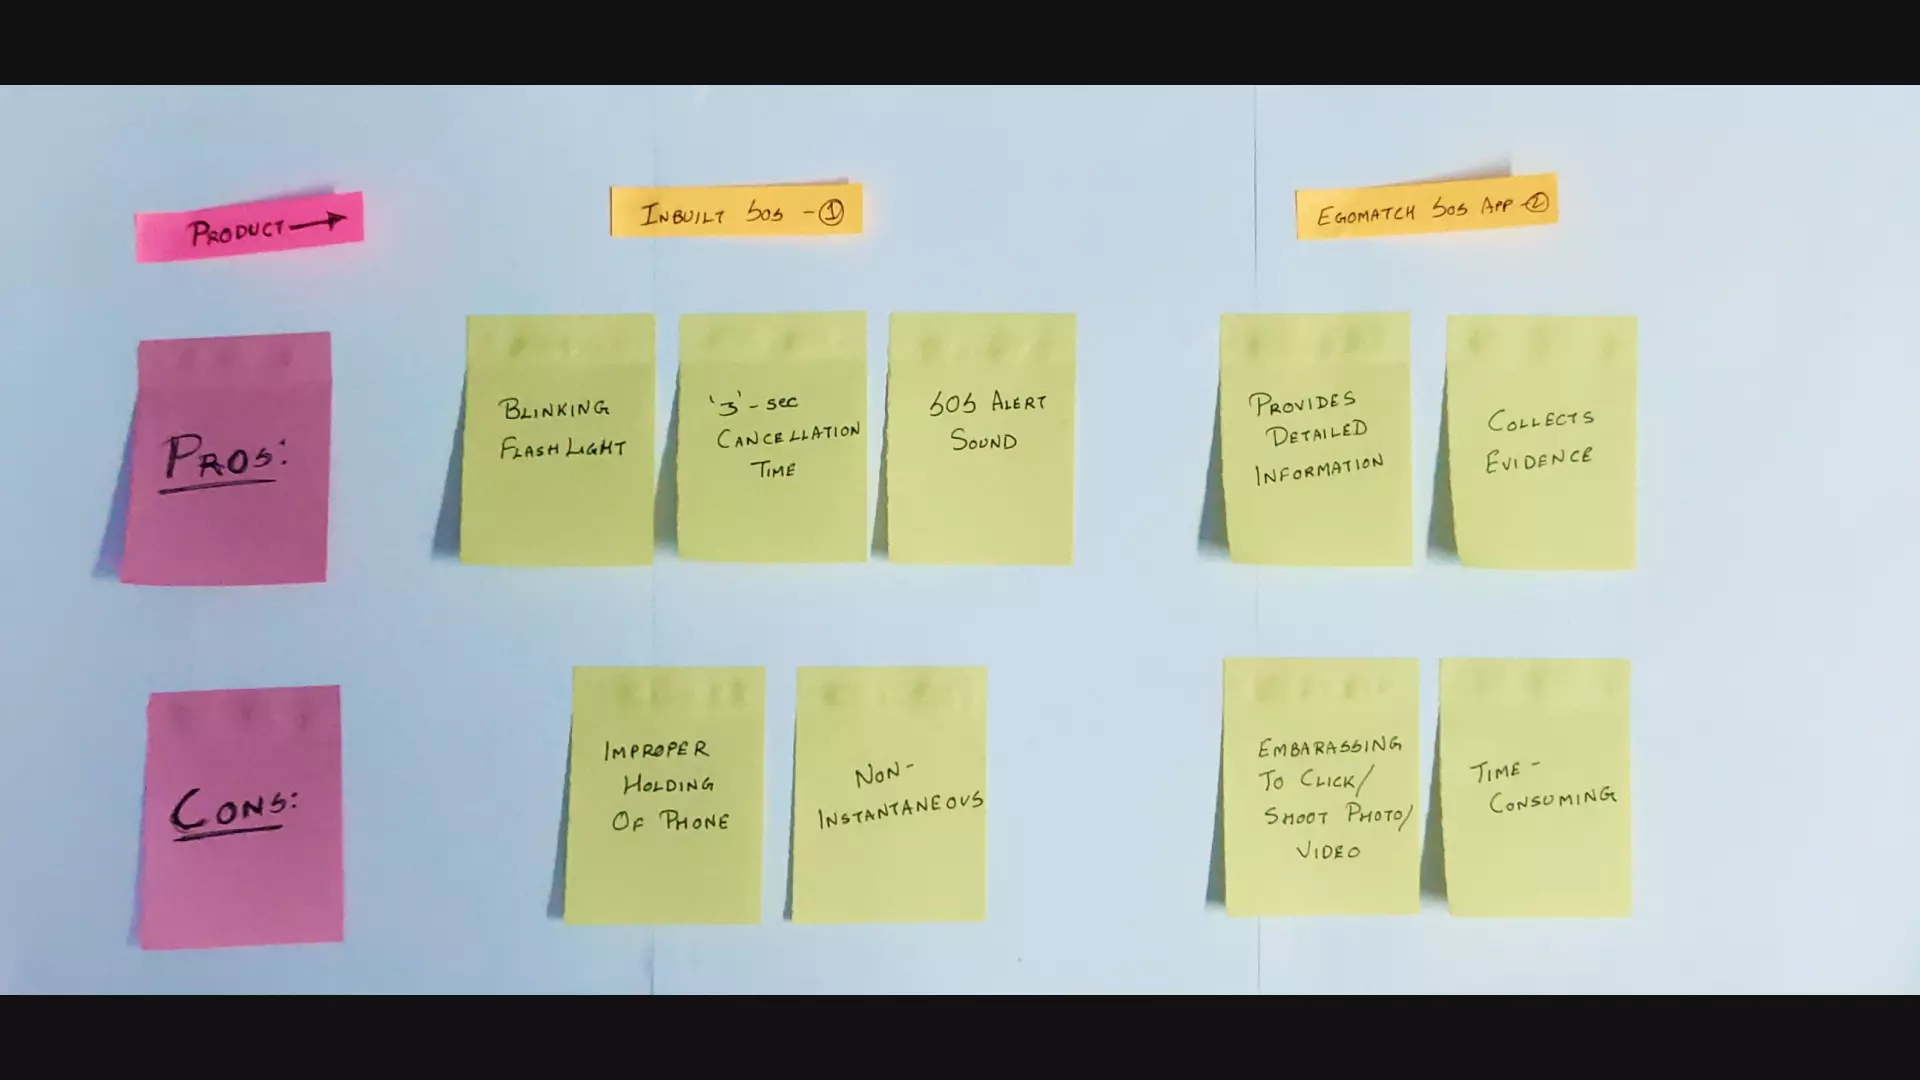 PRODUCT →
INBUILT SOS - ①
EGOMATCH SOS APP - ②
PROS:
BLINKING
FLASHLIGHT
'3'-SEC
CANCELLATION
TIME
SOS ALERT
SOUND
PROVIDES
DETAILED
INFORMATION
COLLECTS
EVIDENCE
CONS:
IMPROPER
HOLDING
OF PHONE
NON-
INSTANTANEOUS
EMBARASSING
TO CLICK/
SHOOT PHOTO/
VIDEO
TIME-
CONSUMING